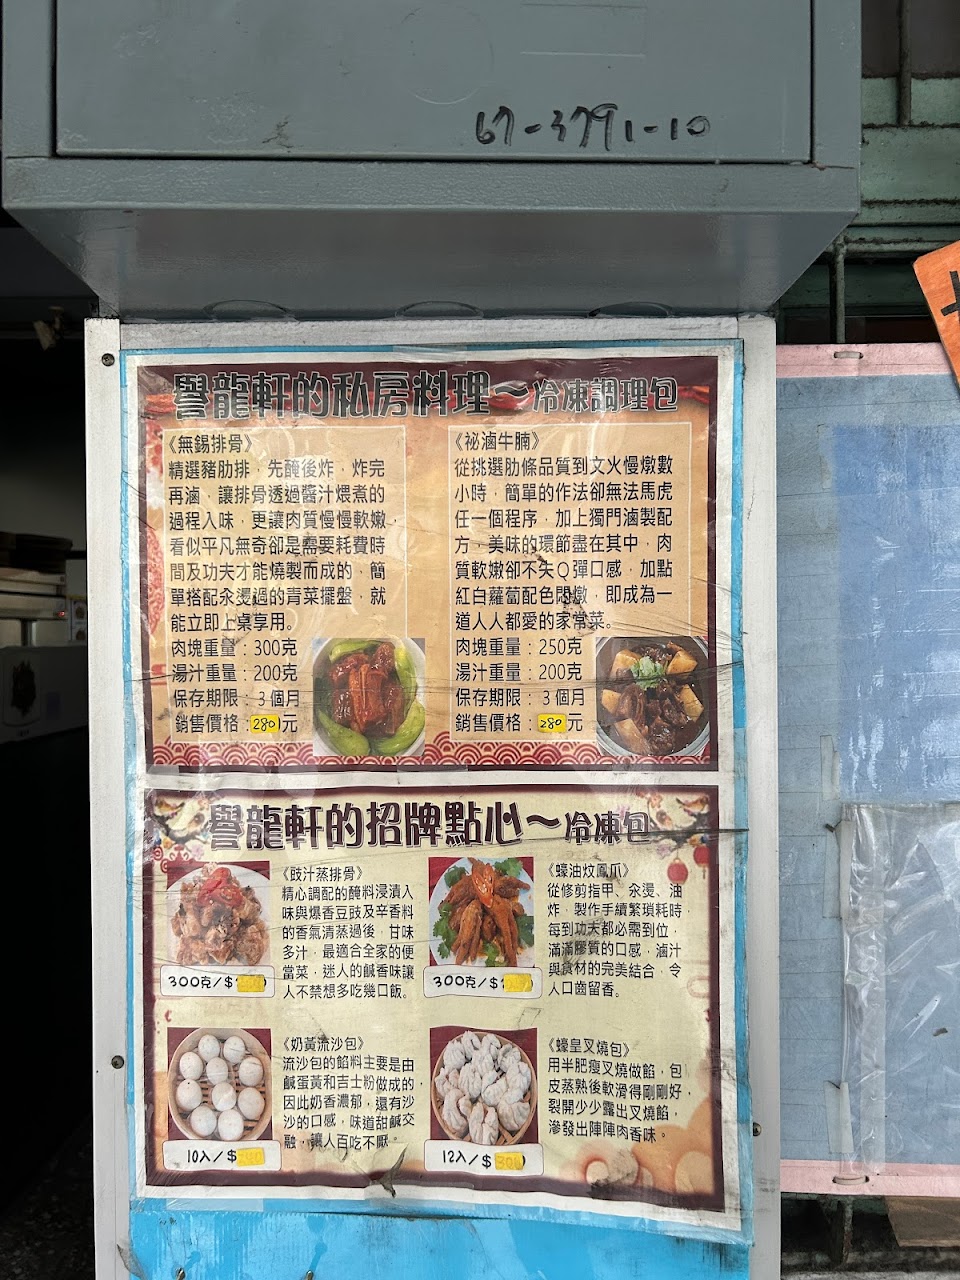 67-3791-10
譽龍軒的私房料理~冷凍調理包
《無錫排骨》
精選豬肋排，先醃後炸，炸完
再滷，讓排骨透過醬汁煨煮的
過程入味，更讓肉質慢慢軟嫩，
看似平凡無奇卻是需要耗費時
間及功夫才能燒製而成的，簡
單搭配汆燙過的青菜擺盤，就
能立即上桌享用。
肉塊重量：300克
湯汁重量：200克
保存期限：3個月
銷售價格：280元
《祕滷牛腩》
從挑選肋條品質到文火慢燉數
小時，簡單的作法卻無法馬虎
任一個程序，加上獨門滷製配
方，美味的環節盡在其中，肉
質軟嫩卻不失Q彈口感，加點
紅白蘿蔔配色悶燉，即成為一
道人人都愛的家常菜。
肉塊重量：250克
湯汁重量：200克
保存期限：3個月
銷售價格：280元
譽龍軒的招牌點心~冷凍包
《豉汁蒸排骨》
精心調配的醃料浸漬入
味與爆香豆豉及辛香料
的香氣清蒸過後，甘味
多汁，最適合全家的便
當菜，迷人的鹹香味讓
人不禁想多吃幾口飯。
300克/$
《蠔油炆鳳爪》
從修剪指甲、汆燙、油
炸，製作手續繁瑣耗時，
每到功夫都必需到位，
滿滿膠質的口感，滷汁
與食材的完美結合，令
人口齒留香。
300克/$
《奶黃流沙包》
流沙包的餡料主要是由
鹹蛋黃和吉士粉做成的，
因此奶香濃郁，還有沙
沙的口感，味道甜鹹交
融，讓人百吃不厭。
10入/$
《蠔皇叉燒包》
用半肥瘦叉燒做餡，包
皮蒸熟後軟滑得剛剛好，
裂開少少露出叉燒餡，
滲發出陣陣肉香味。
12入/$300